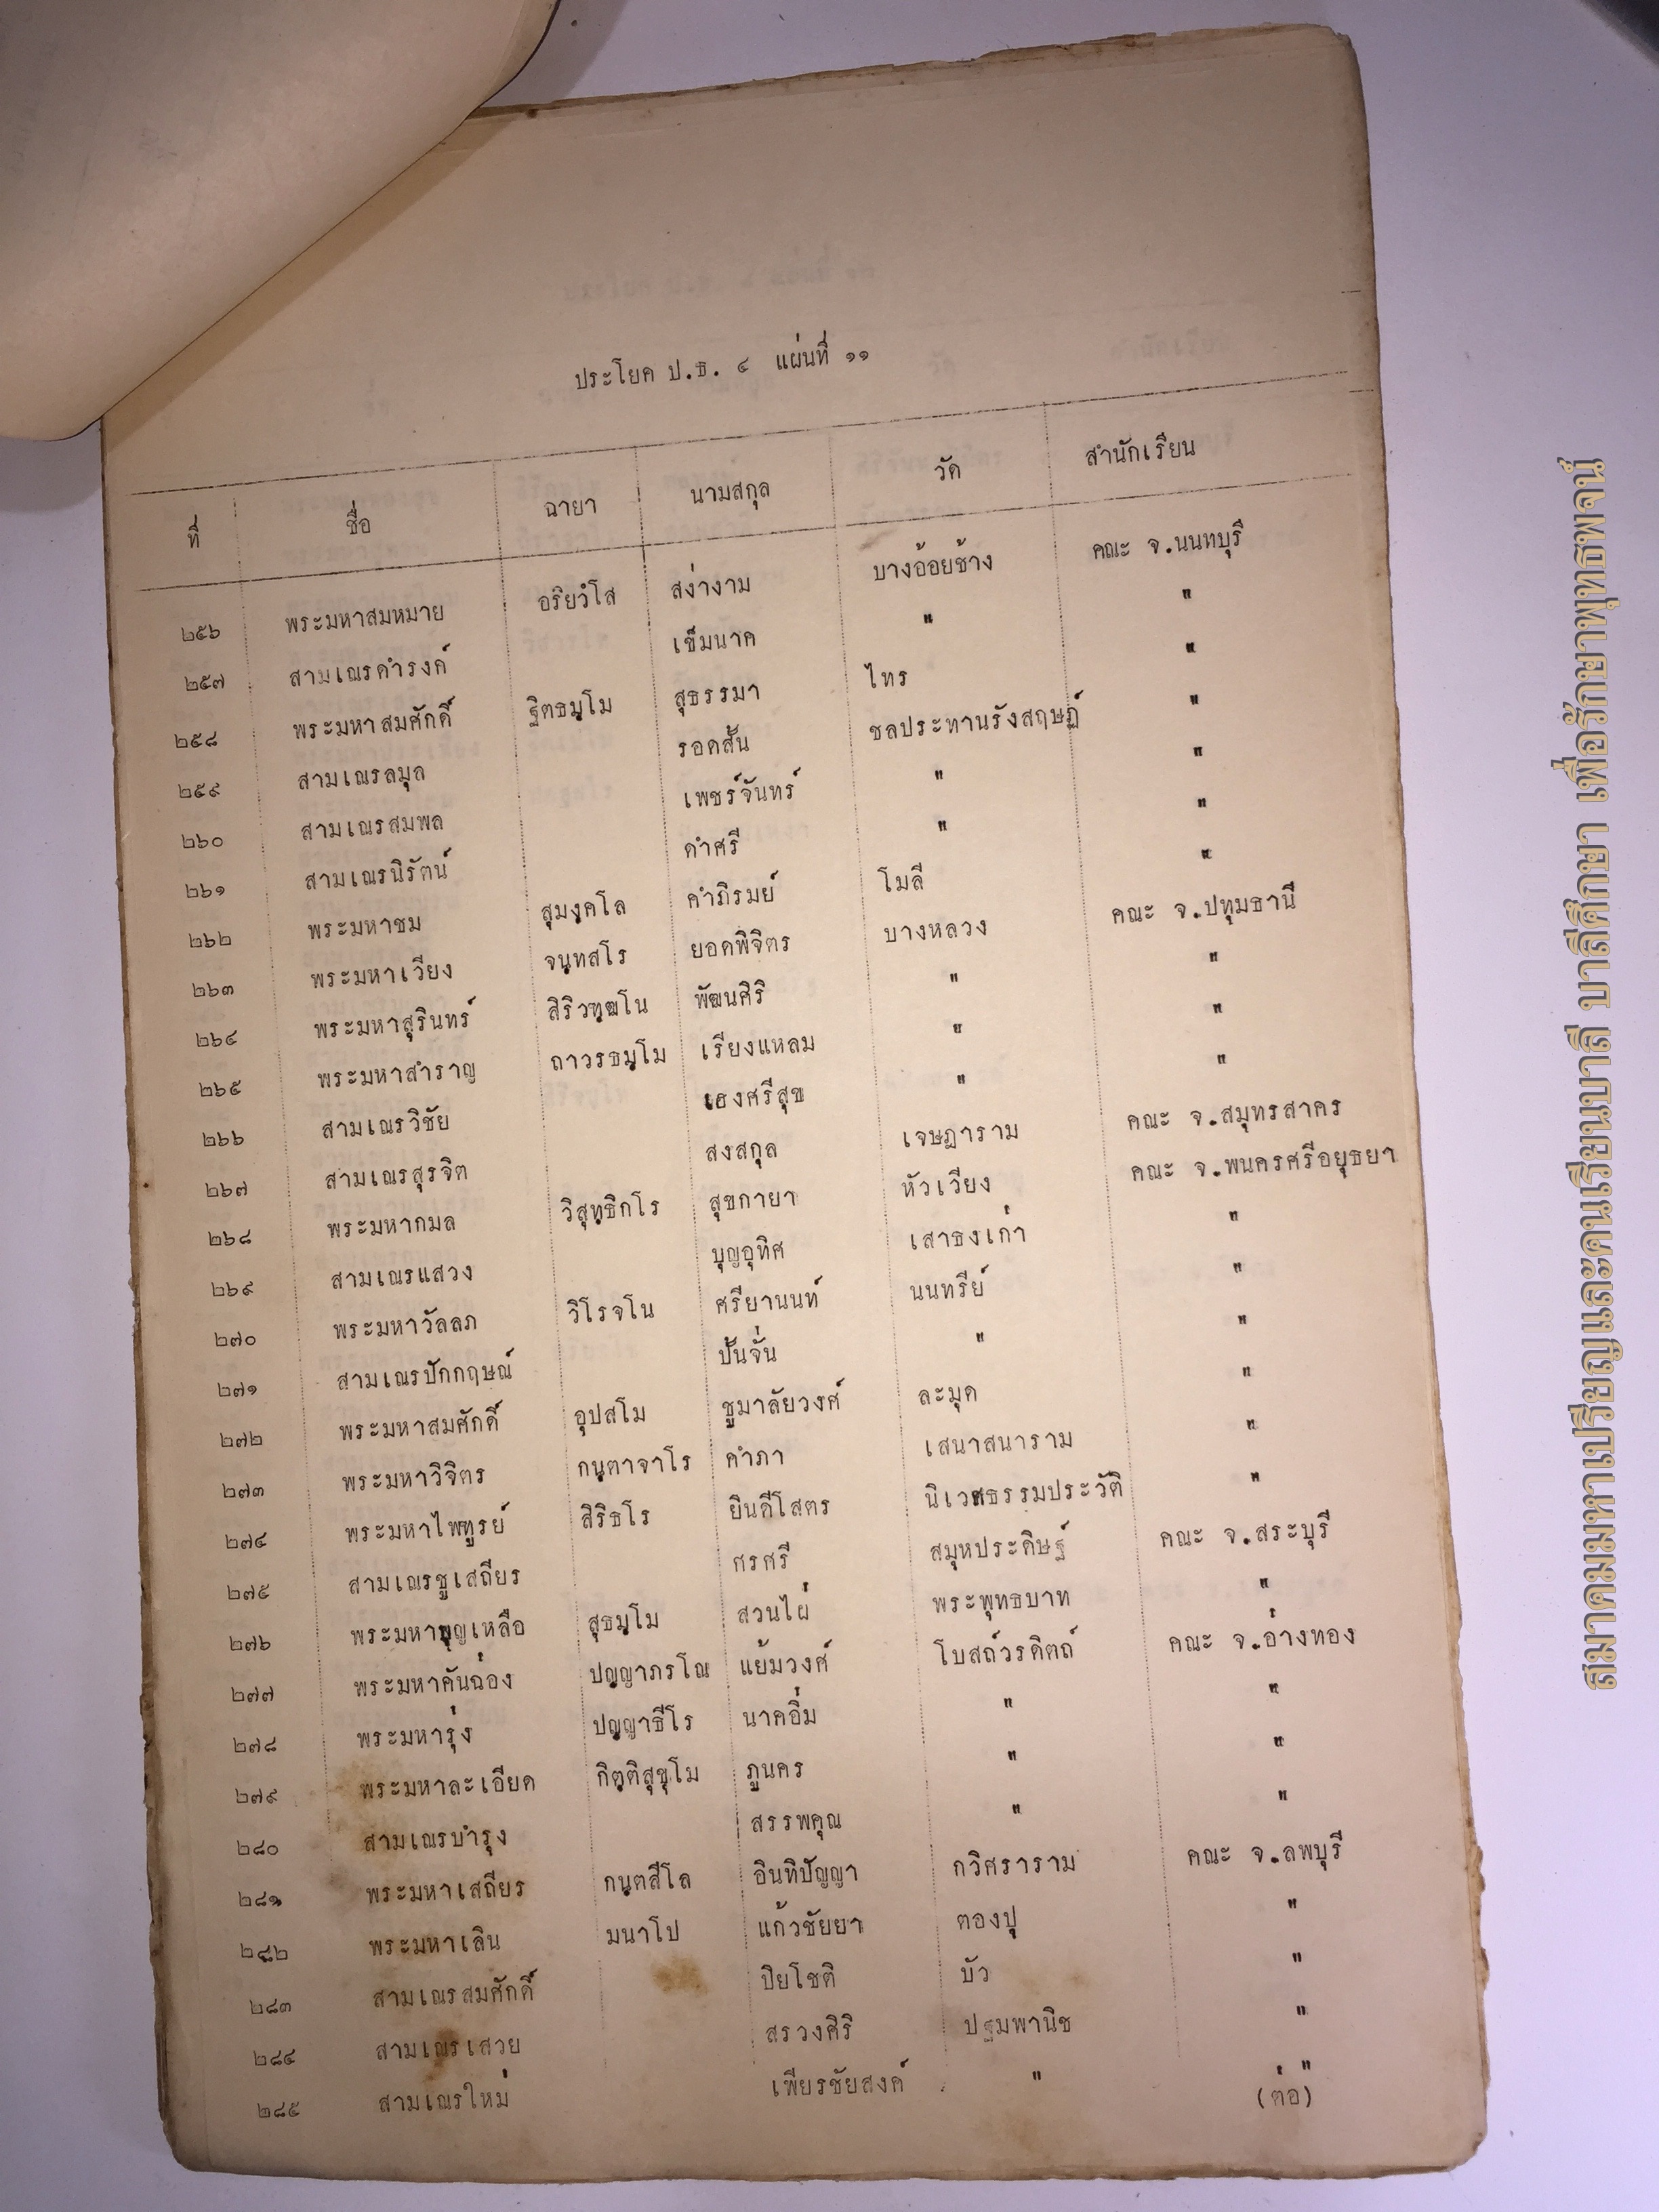 ประโยค ป.ธ. ๔ แผ่นที่ ๑๑
ที่ ชื่อ ฉายา นามสกุล วัด สำนักเรียน
๒๕๖ พระมหาสมหมาย อริยวํโส สง่างาม บางอ้อยช้าง คณะ จ.นนทบุรี
๒๕๗ สามเณรดำรงค์ เข็มนาค " "
๒๕๘ พระมหาสมศักดิ์ ฐิตธมฺโม สุธรรมา ไทร "
๒๕๙ สามเณรลมุล รอดสั้น ชลประทานรังสฤษฏ์ "
๒๖๐ สามเณรสมพล เพชร์จันทร์ " "
๒๖๑ สามเณรนิรัตน์ ดำศรี " "
๒๖๒ พระมหาชม สุมงฺคโล คำภิรมย์ โมลี "
๒๖๓ พระมหาเวียง จนฺทสโร ยอดพิจิตร บางหลวง คณะ จ.ปทุมธานี
๒๖๔ พระมหาสุรินทร์ สิริวฑฺฒโน พัฒนศิริ " "
๒๖๕ พระมหาสำราญ ถาวรธมฺโม เรียงแหลม " "
๒๖๖ สามเณรวิชัย เฮงศรีสุข " "
๒๖๗ สามเณรสุรจิต สงสกุล เจษฎาราม คณะ จ.สมุทรสาคร
๒๖๘ พระมหากมล วิสุทฺธิกโร สุขกายา หัวเวียง คณะ จ.พนครศรีอยุธยา
๒๖๙ สามเณรแสวง บุญอุทิศ เสาธงเก่า "
๒๗๐ พระมหาวัลลภ วิโรจโน ศรียานนท์ นนทรีย์ "
๒๗๑ สามเณรปักกฤษณ์ ปั้นจั่น " "
๒๗๒ พระมหาสมศักดิ์ อุปสโม ชูมาลัยวงศ์ ละมุด "
๒๗๓ พระมหาวิจิตร กนฺตาจาโร คำภา เสนาสนาราม "
๒๗๔ พระมหาไพฑูรย์ สิริธโร ยินดีโสตร นิเวศธรรมประวัติ "
๒๗๕ สามเณรชูเสถียร ศรศรี สมุหประดิษฐ์ คณะ จ.สระบุรี
๒๗๖ พระมหาบุญเหลือ สุธมฺโม สวนไผ่ พระพุทธบาท "
๒๗๗ พระมหาคันฉ่อง ปญฺญาภรโณ แย้มวงศ์ โบสถ์วรดิตถ์ คณะ จ.อ่างทอง
๒๗๘ พระมหารุ่ง ปญฺญาธีโร นาคอิ่ม " "
๒๗๙ พระมหาละเอียด กิตฺติสุขุโม ภูนคร " "
๒๘๐ สามเณรบำรุง สรรพคุณ " "
๒๘๑ พระมหาเสถียร กนฺตสีโล อินทิปัญญา กวิศราราม คณะ จ.ลพบุรี
๒๘๒ พระมหาเลิน มนาโป แก้วชัยยา ตองปุ "
๒๘๓ สามเณรสมศักดิ์ ปิยโชติ บัว "
๒๘๔ สามเณรเสวย สรวงศิริ ปฐมพานิช "
๒๘๕ สามเณรใหม่ เพียรชัยสงค์ " "
(ต่อ)
สมาคมมหาเปรียญและคนเรียนบาลี บาลีศึกษา เพื่อรักษาพุทธพจน์